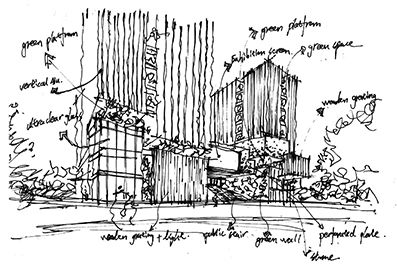 green platfram
green platfram
exhibition screen
green space
vertical
ultra clear glass
wooden grating
wooden grating + light.
public stair
green wall
perforated plate.
stone